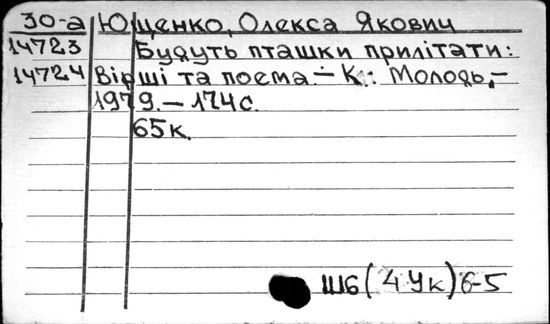 30-а Ющенко, Олекса Якович
14723 Будуть пташки прилітати:
14724 Вірші та поема.- К.: Молодь,-
1979.- 174с.
65к.
Ш6(4Ук)6-5